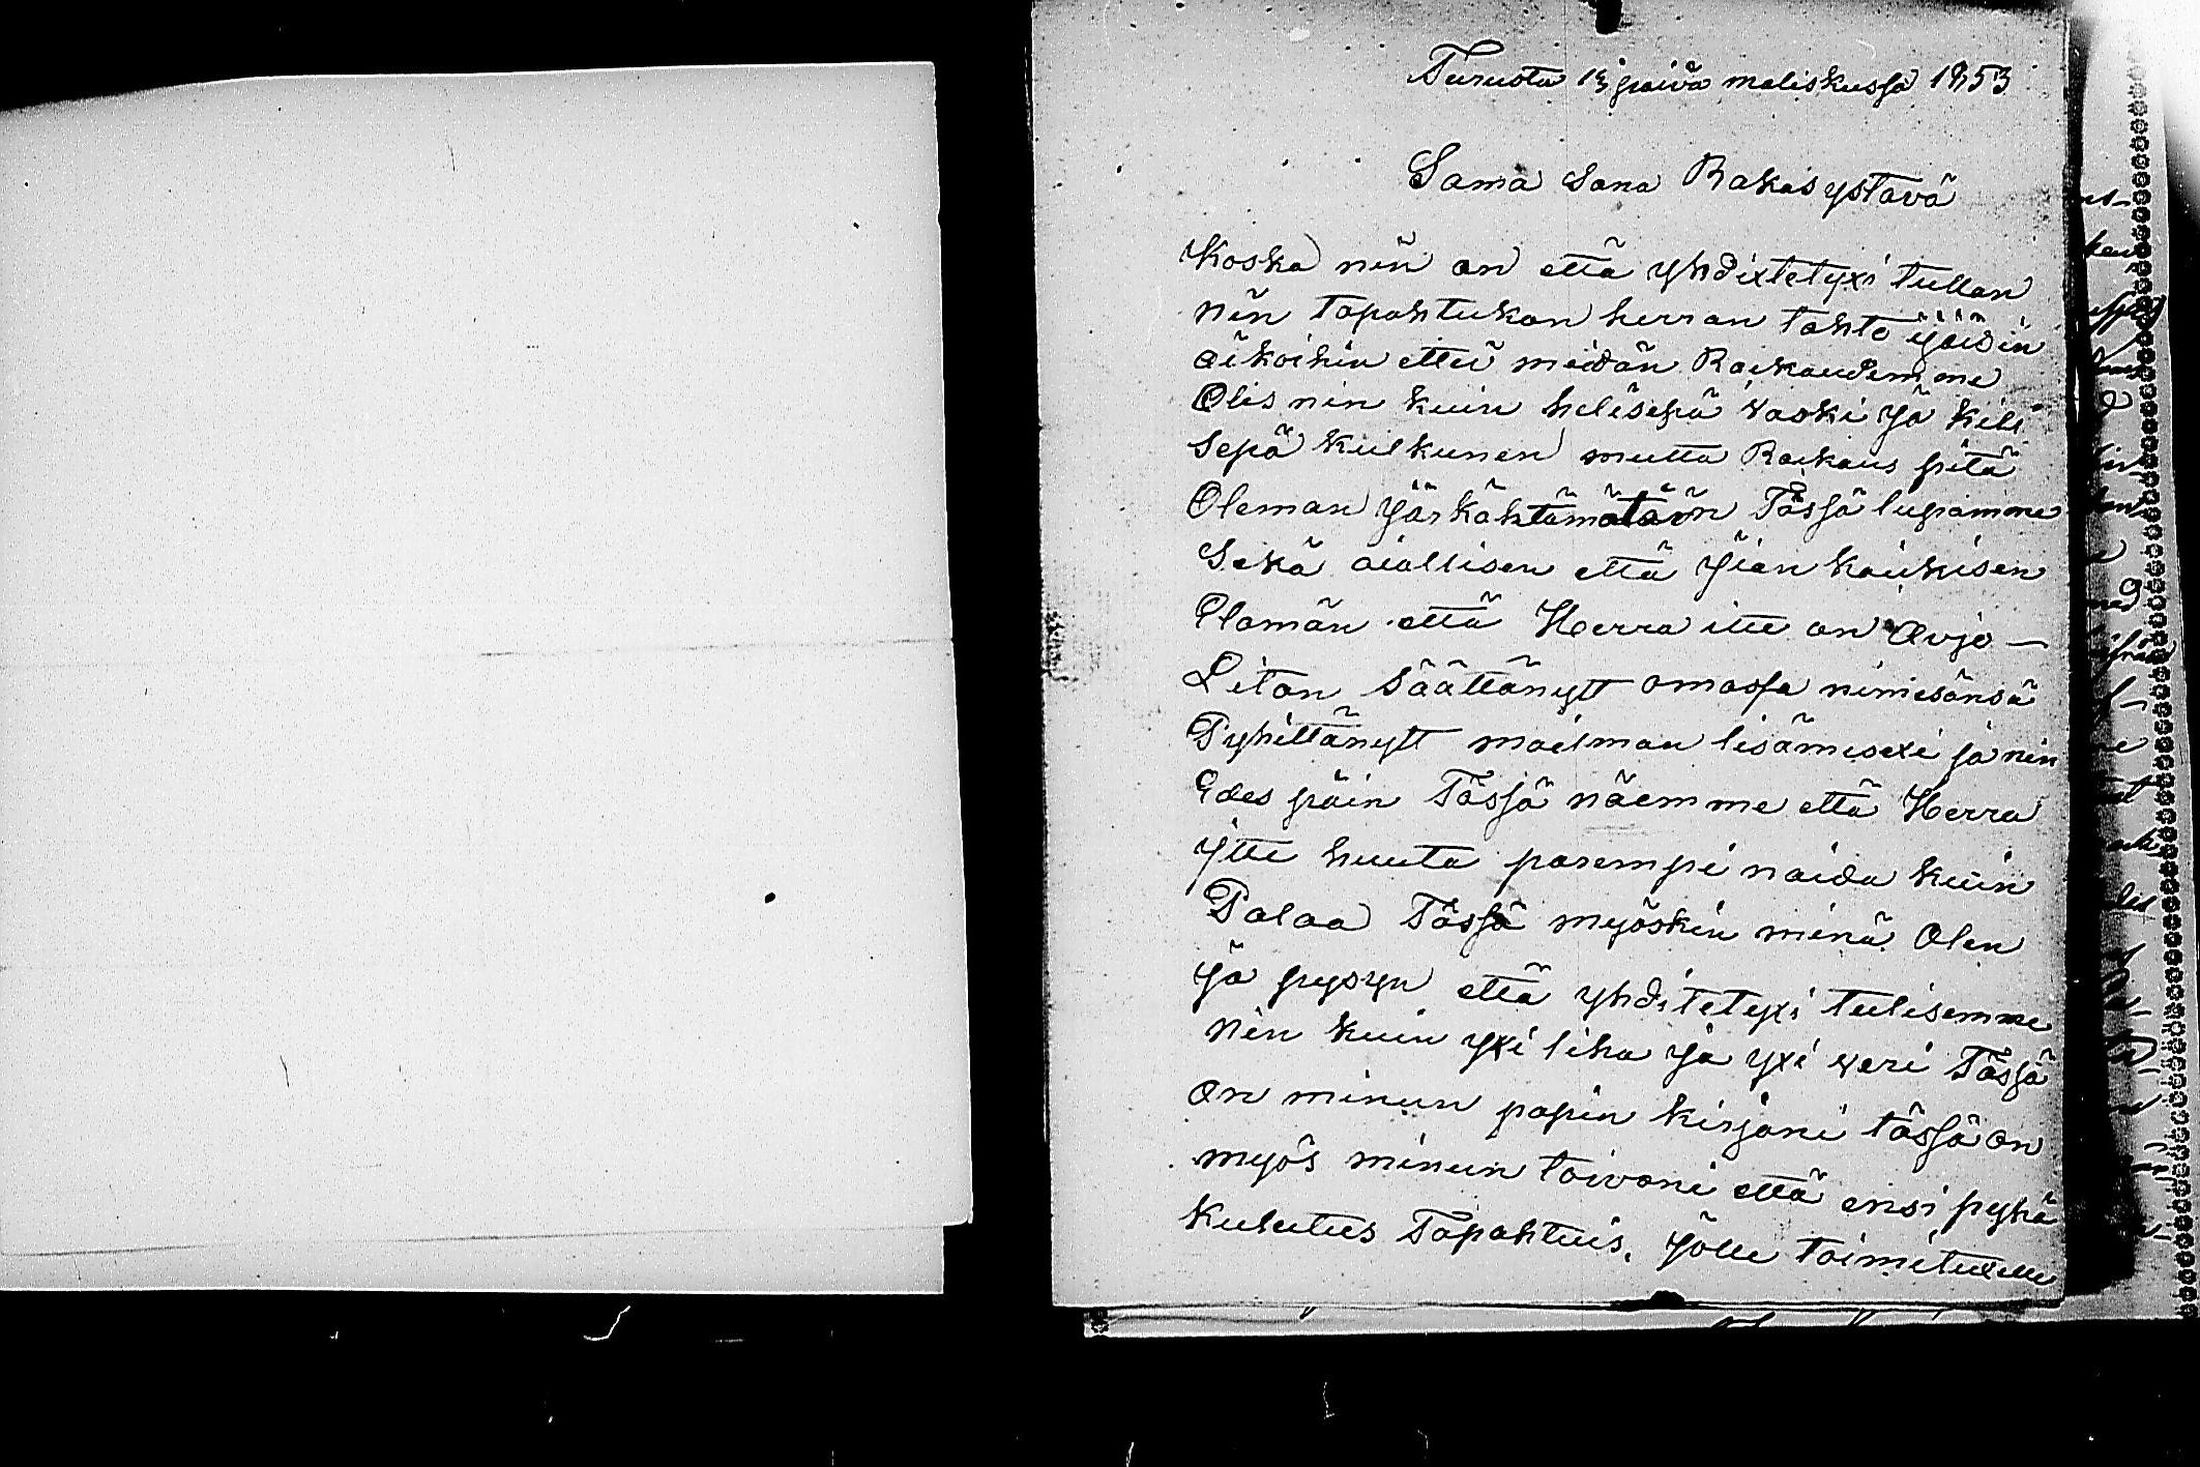 Turusta 13 päivä maliskussa 1853
Sama sana Rakas ystävä
Koska nin on että yhdixtetyxi tullan
nin tapahtukon herran tahto ijäisin
aikoihin ettei meidän Rakaudemme
Olis nin kuin helisepä vaski ja kili
sepä kulkunen mutta Rakaus pitä
Oleman järkähtämätöin Tässä lupamme
Sekä aiallisen että Jian kaikisen
Elämän että Herra itte on Avjo-
Liton Säättänytt omassa nimesänsä
Pyhittänytt mailman lisämisexi ja nin
Edes päin Tässä näemme että Herra
itte huuta parempi naida kuin
Palaa Tässä myöskin minä Olen
ja pysyn että yhditetyxi tulisemme
nin kuin yxi liha ja yxi veri Tässä
on minun papin kirjani tässä on
myös minun toivoni että ensi pyhä
kulutus Tapahtuis. jolle toimituxelle